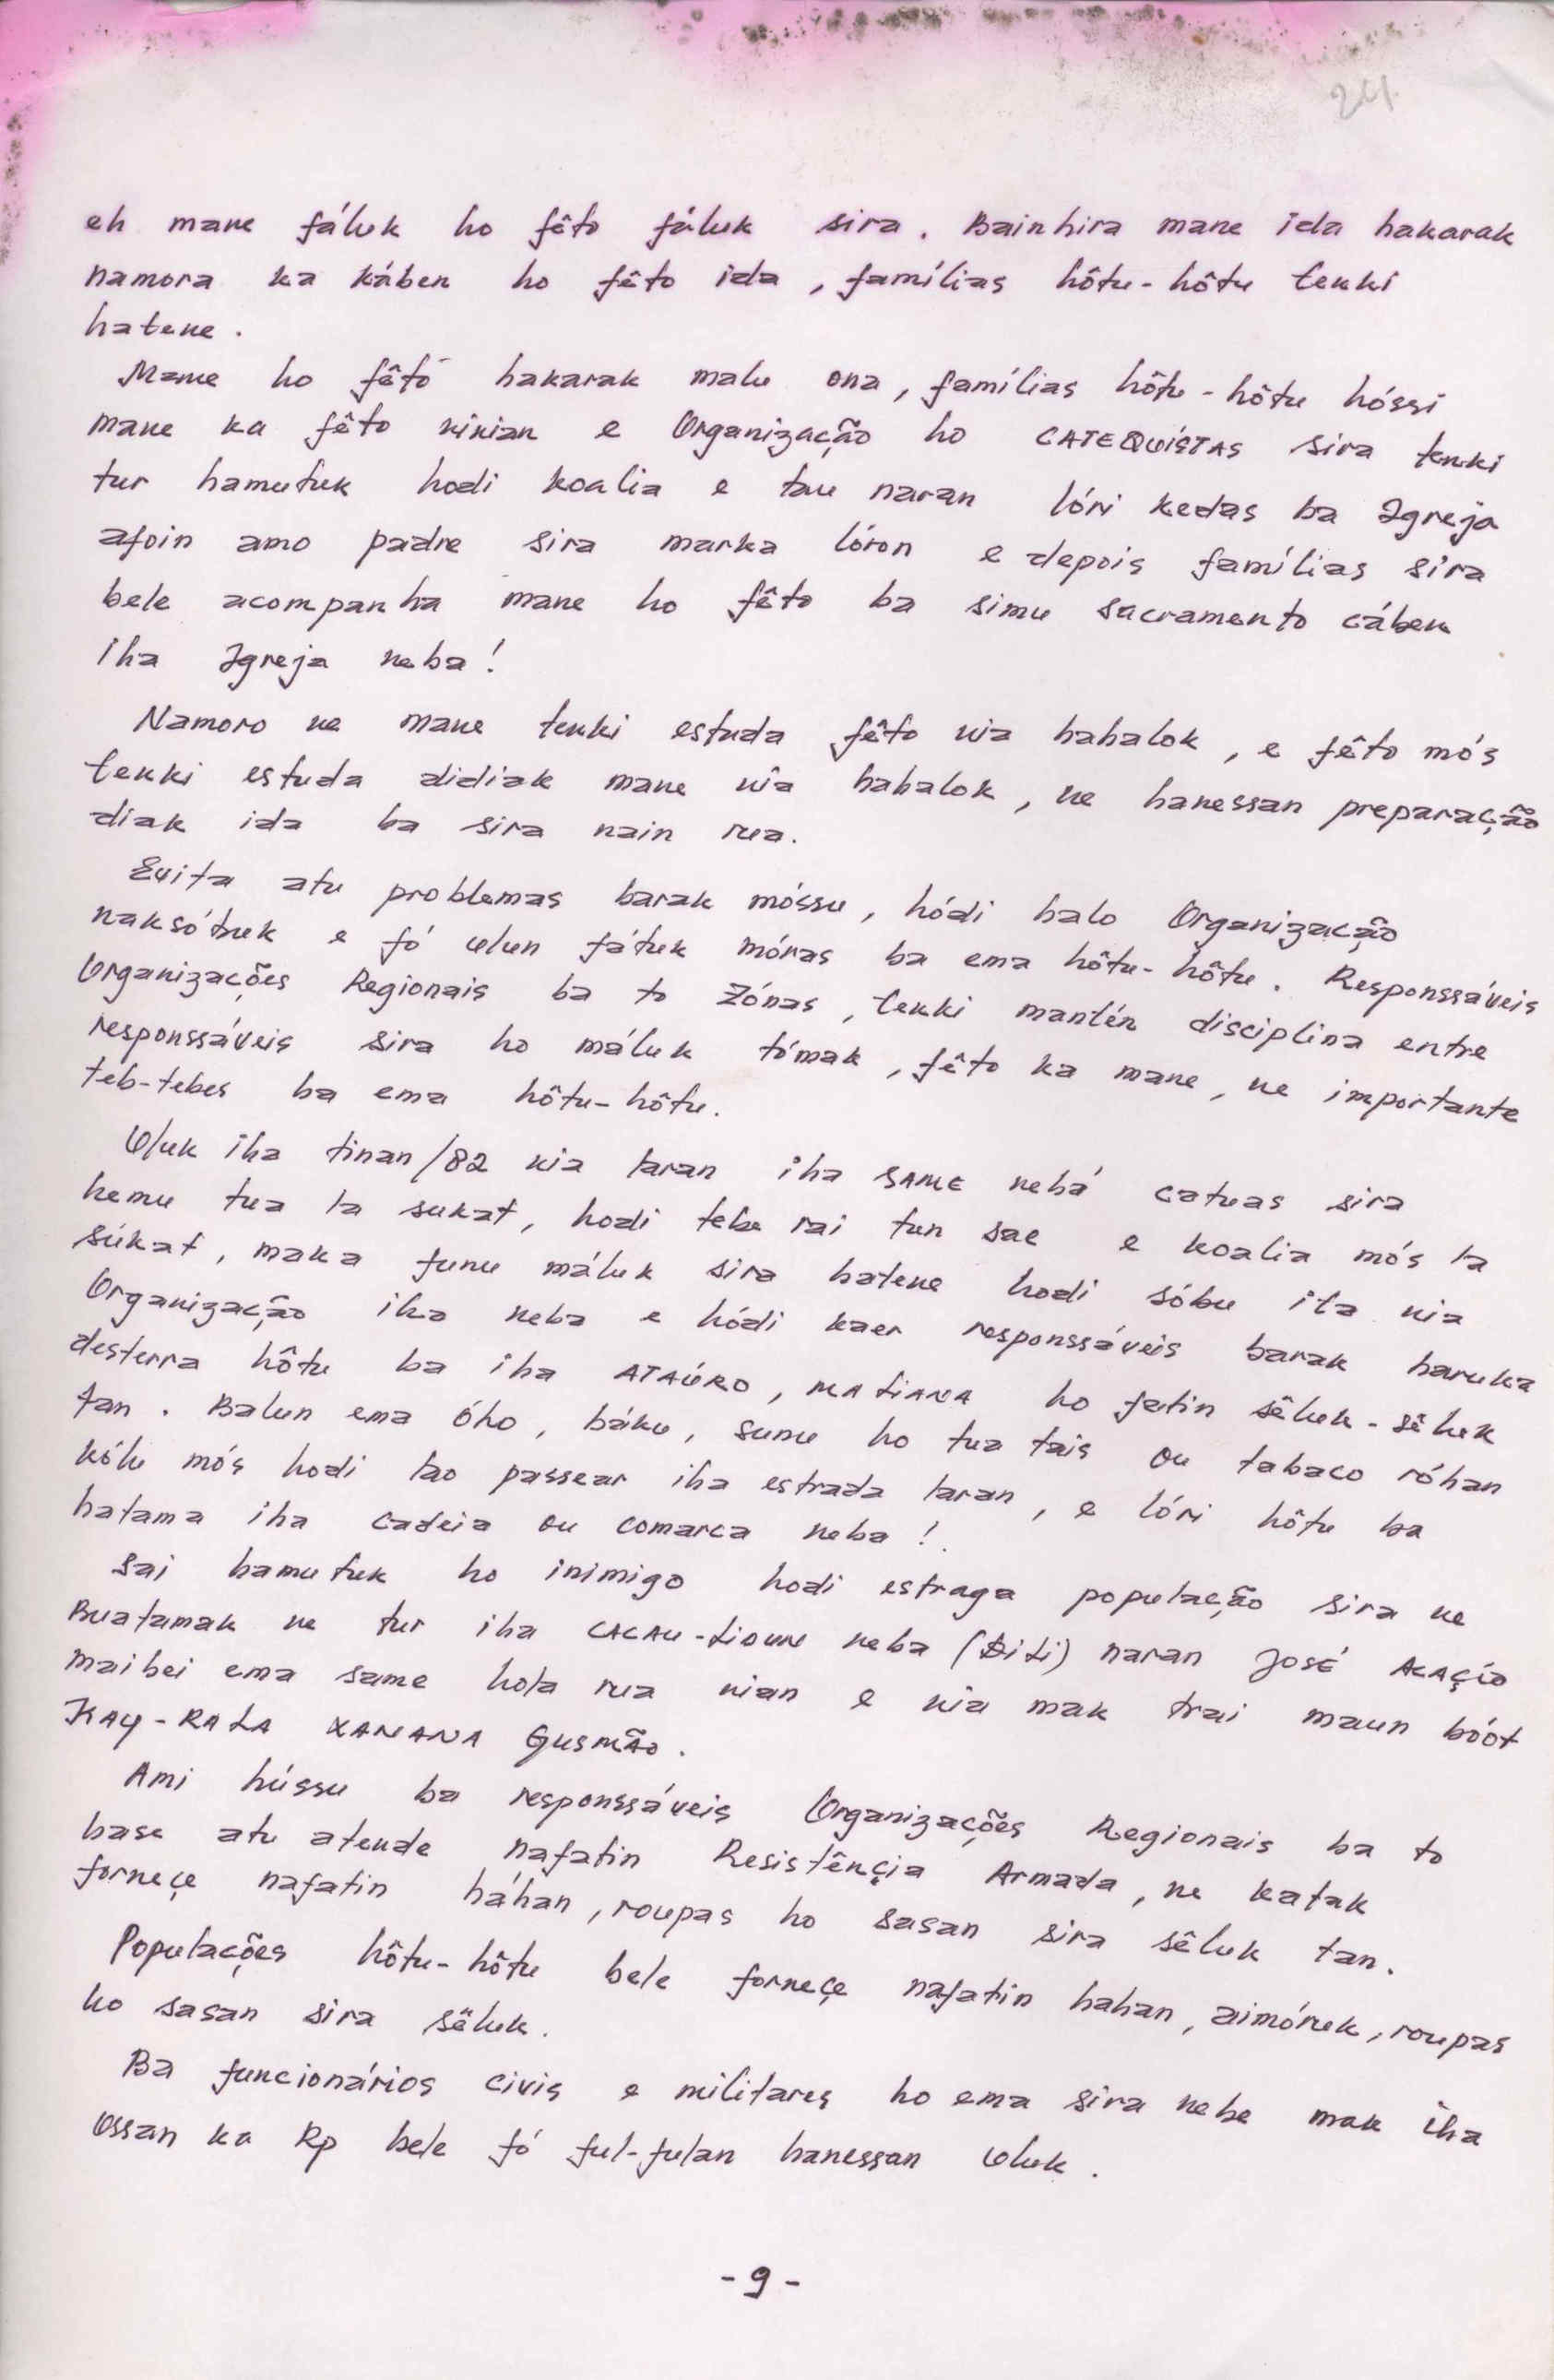 24
eh mane fáluk ho fêto fáluk sira. Bainhira mane ida hakarak
namora ka káben ho fêto ida, famílias hôtu-hôtu tenki
hatene.
Mane ho fêto hakarak malu ona, famílias hôtu-hôtu hóssi
mane ka fêto ninian e Organização ho CATEQUÍSTAS sira tenki
tur hamutuk hodi koalia e tau naran lóri kedas ba Igreja
afoin amo padre sira marka lóron e depois famílias sira
bele acompanha mane ho fêto ba simu sacramento cáben
iha Igreja neba!
Namoro ne mane tenki estuda fêto nia hahalok, e fêto mós
tenki estuda didiak mane nia hahalok, ne hanessan preparação
diak ida ba sira nain rua.
Evita atu problemas barak móssu, hódi halo Organização
naksótuk e fó ulun fátuk móras ba ema hôtu-hôtu. Responssáveis
Organizações Regionais ba to Zónas, tenki mantén disciplina entre
responssáveis sira ho máluk tómak, fêto ka mane, ne importante
teb-tebes ba ema hôtu-hôtu.
Uluk iha tinan/82 nia laran iha SAME nebá catuas sira
hemu tua la sukat, hodi tebe rai tun sae e koalia mós la
súkat, maka funu máluk sira hatene hodi sóbu ita nia
Organização iha neba e hódi kaer responssáveis barak haruka
desterra hôtu ba iha ATAÚRO, MALIANA ho fatin sêluk-sêluk
tan. Balun ema óho, báku, sunu ho tua tais ou tabaco róhan
kólu mós hodi lao passear iha estrada laran, e lóri hôtu ba
hatama iha cadeia ou comarca neba!
Sai hamutuk ho inimigo hodi estraga população sira ne
Buatamak ne tur iha CACAU-LIDUN neba (DiLi) naran JOSÉ ACAÇÍO
maibei ema same hola rua nian e nia mak trai maun bóot
KAY-RALA XANANA GUSMÃO.
Ami hússu ba responssáveis Organizações Regionais ba to
base atu atende nafatin Resistênçia Armada, ne katak
forneçe nafatin háhan, roupas ho sasan sira sêluk tan.
Populações hôtu-hôtu bele forneçe nafatin hahan, aimóruk, roupas
ho sasan sira sêluk.
Ba funcionários civis e militares ho ema sira nebe mak iha
Ossan ka Rp bele fó ful-fulan hanessan uluk.
-9-